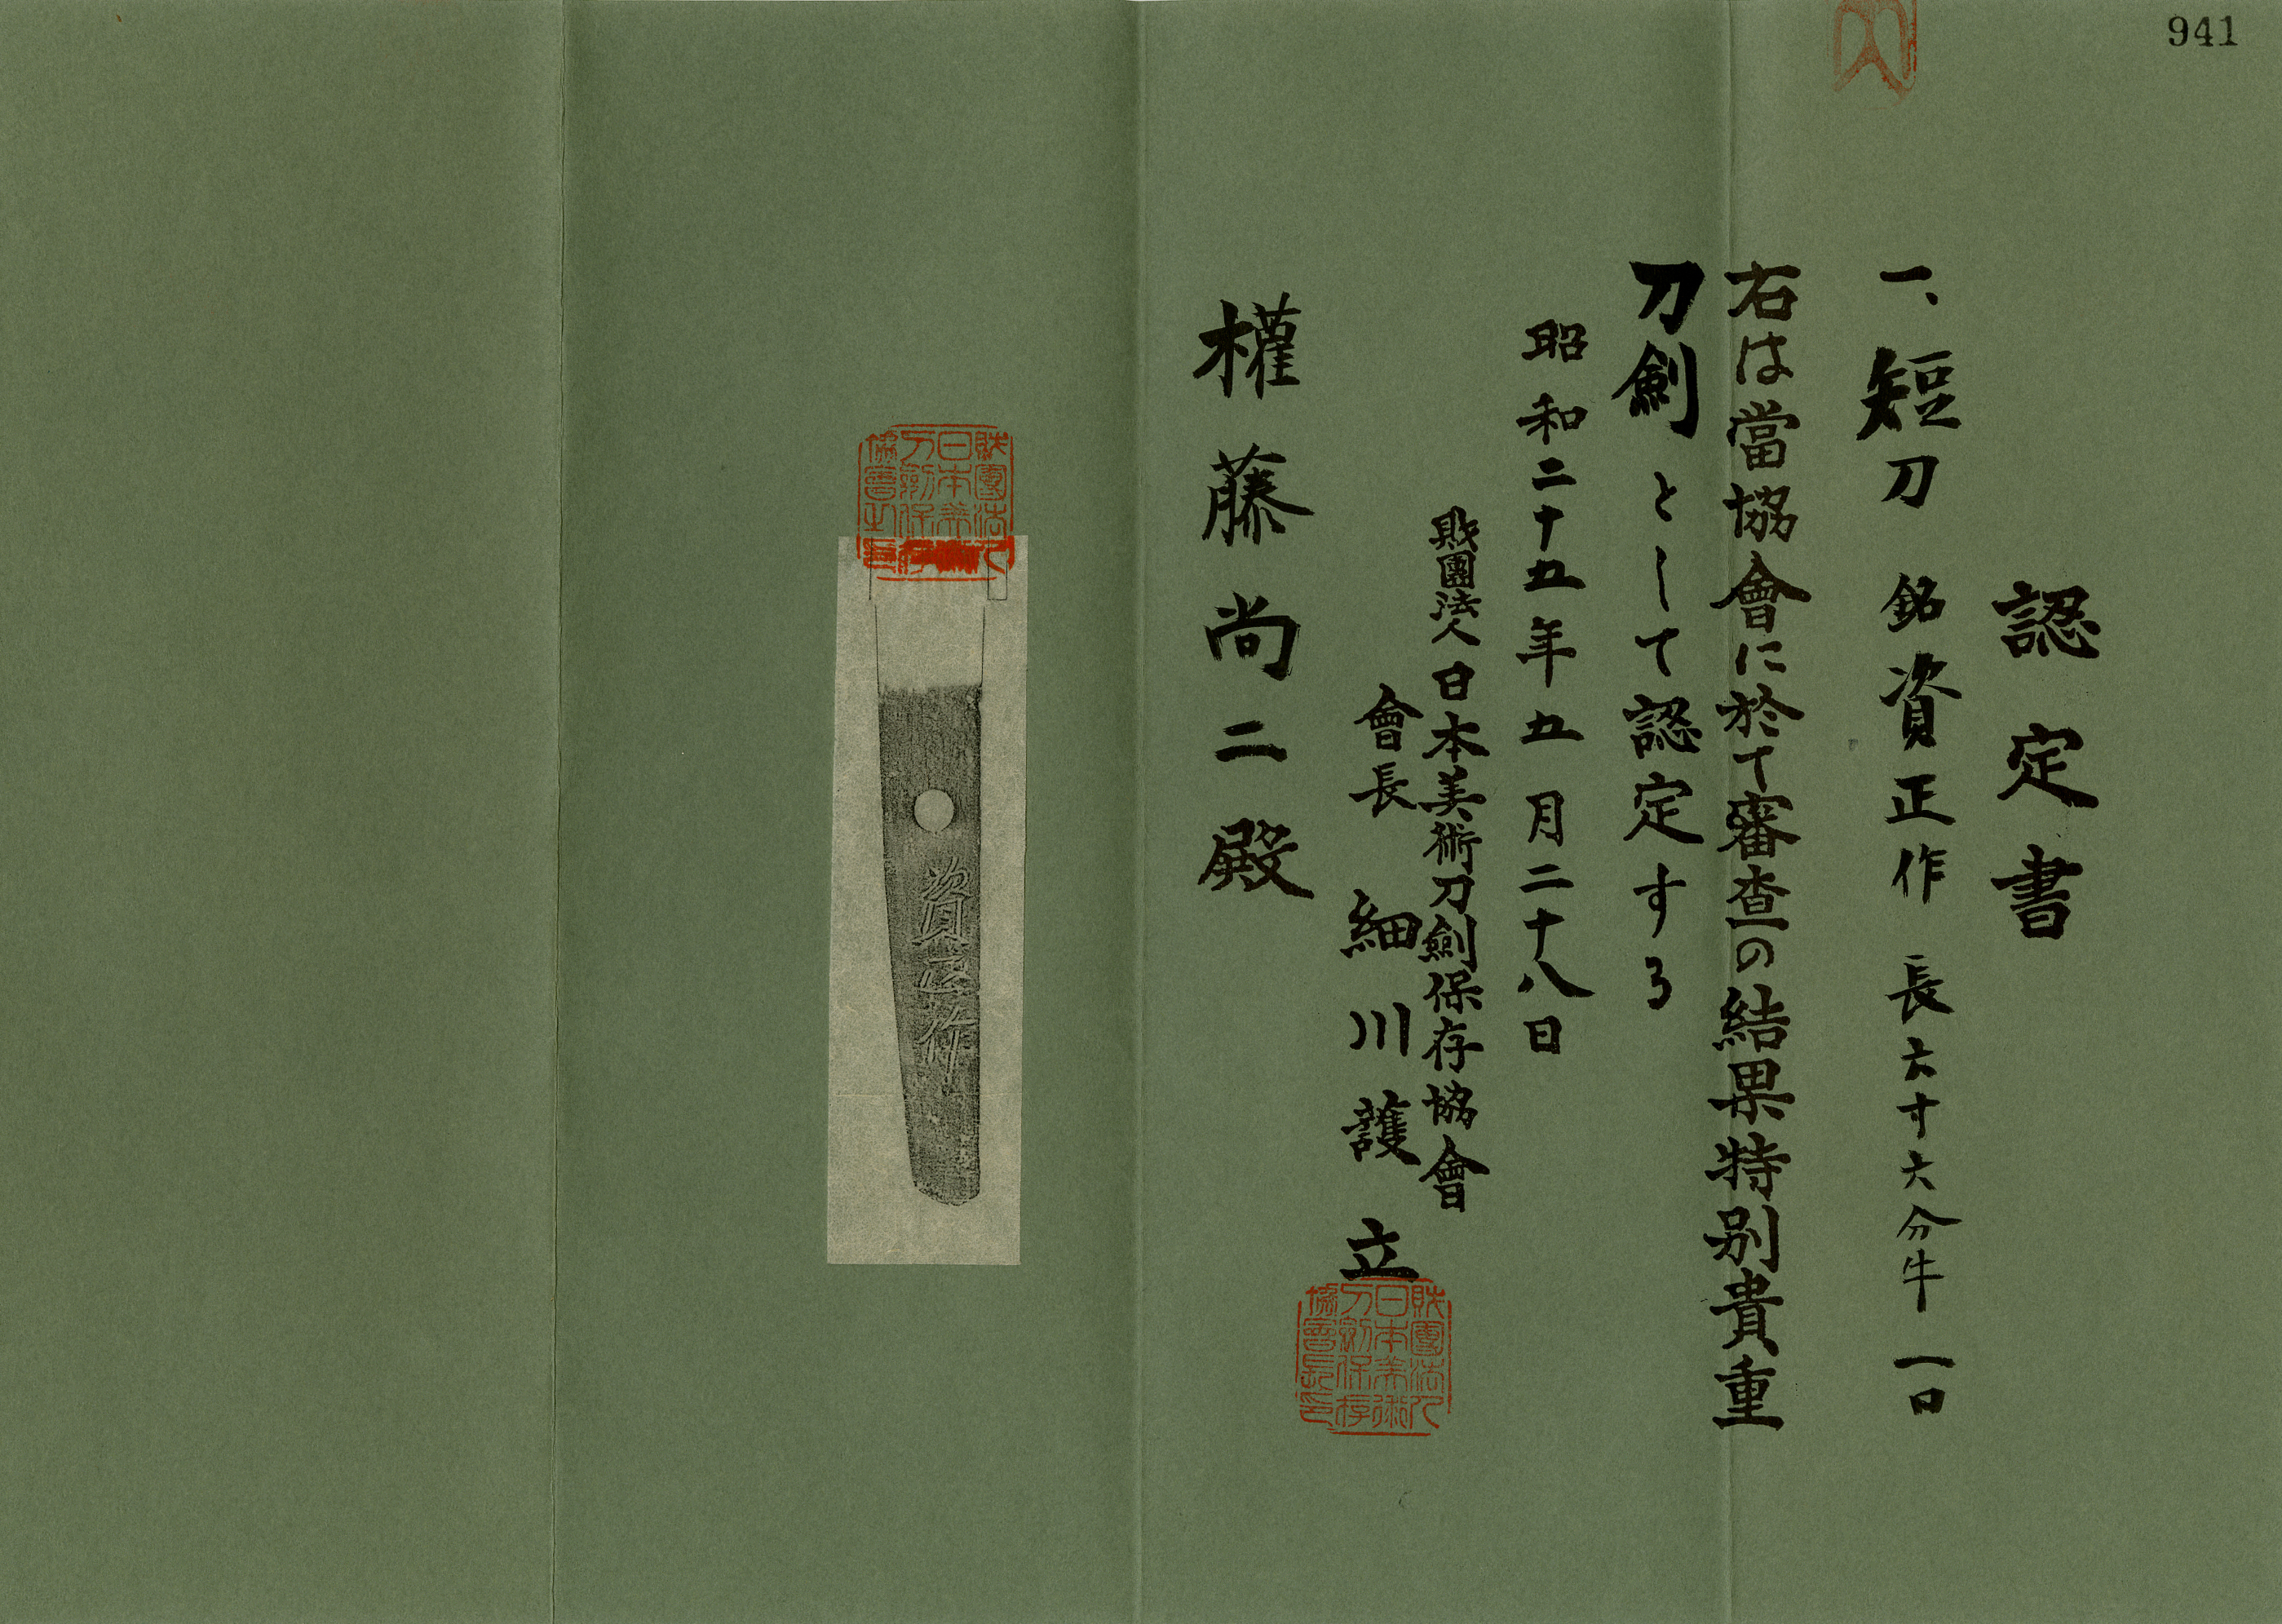 941
認定書
一、短刀 銘 資正作 長六寸六分半 一口
右は當協會に於て審査の結果特別貴重
刀劍として認定する
昭和二十五年五月二十八日
財團法人日本美術刀劍保存協會
會長 細川護立
財團法人日本美術刀劍保存協會長印
權藤尚二殿
財團法人日本美術刀劍保存協會長印
資正作